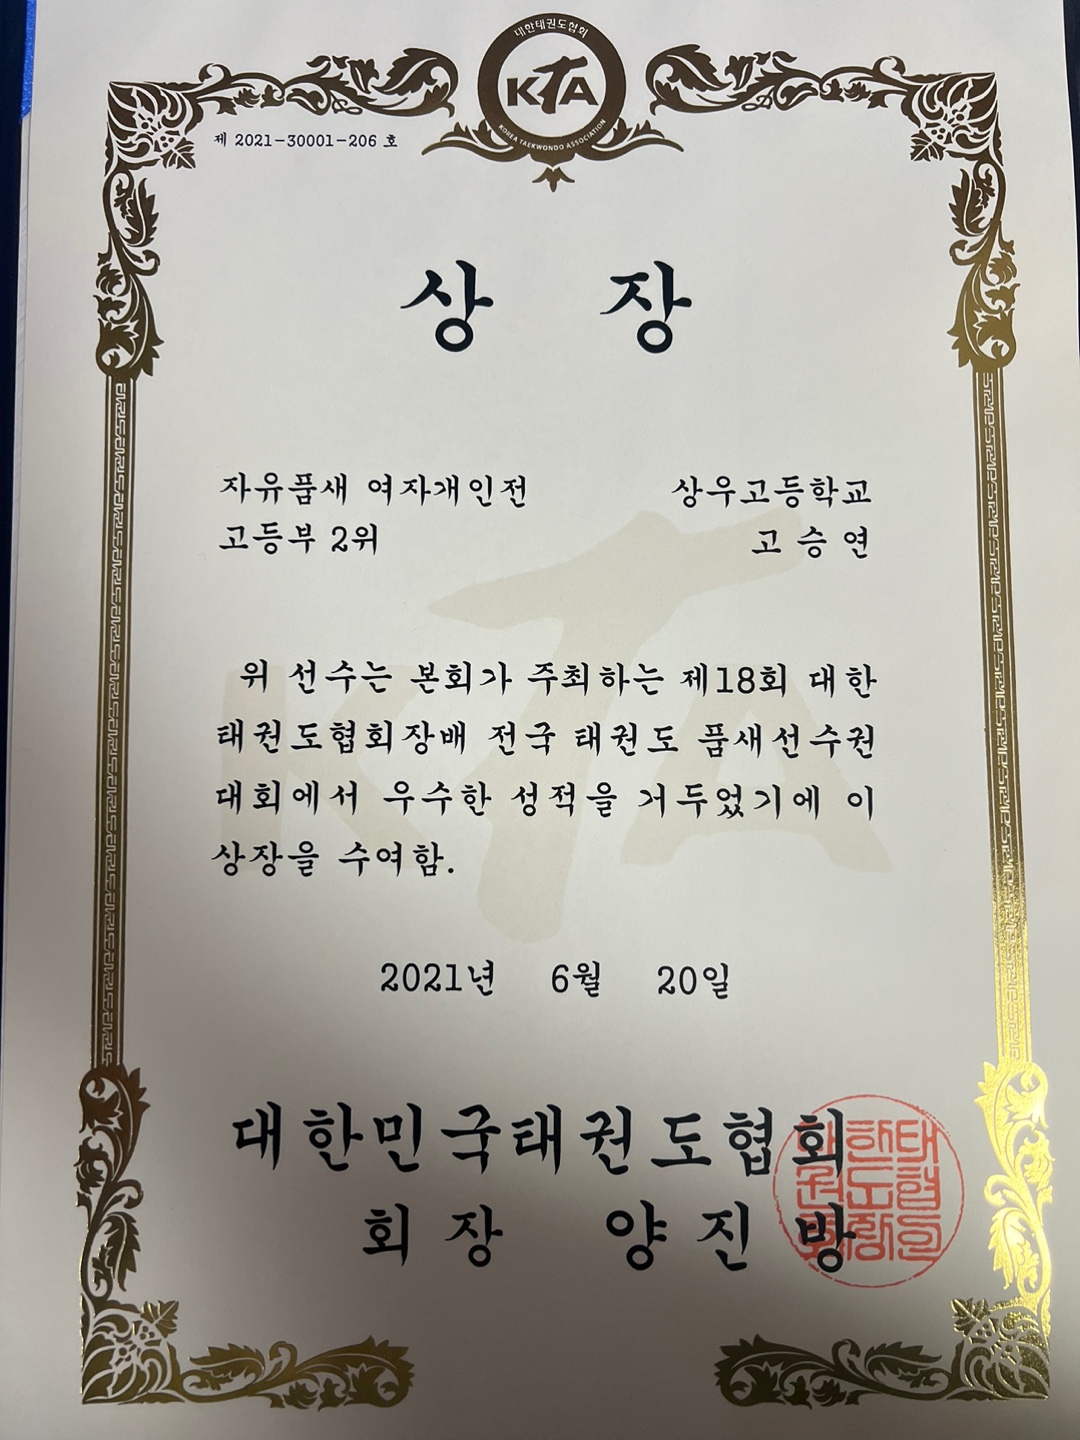 대한태권도협회
KTA
KOREA TAEKWONDO ASSOCIATION
제 2021-30001-206 호
상 장
자유품새 여자개인전 상우고등학교
고등부 2위 고 승 연
위 선수는 본회가 주최하는 제18회 대한
태권도협회장배 전국 태권도 품새선수권
대회에서 우수한 성적을 거두었기에 이
상장을 수여함.
2021년 6월 20일
대한민국태권도협회
회 장 양 진 방